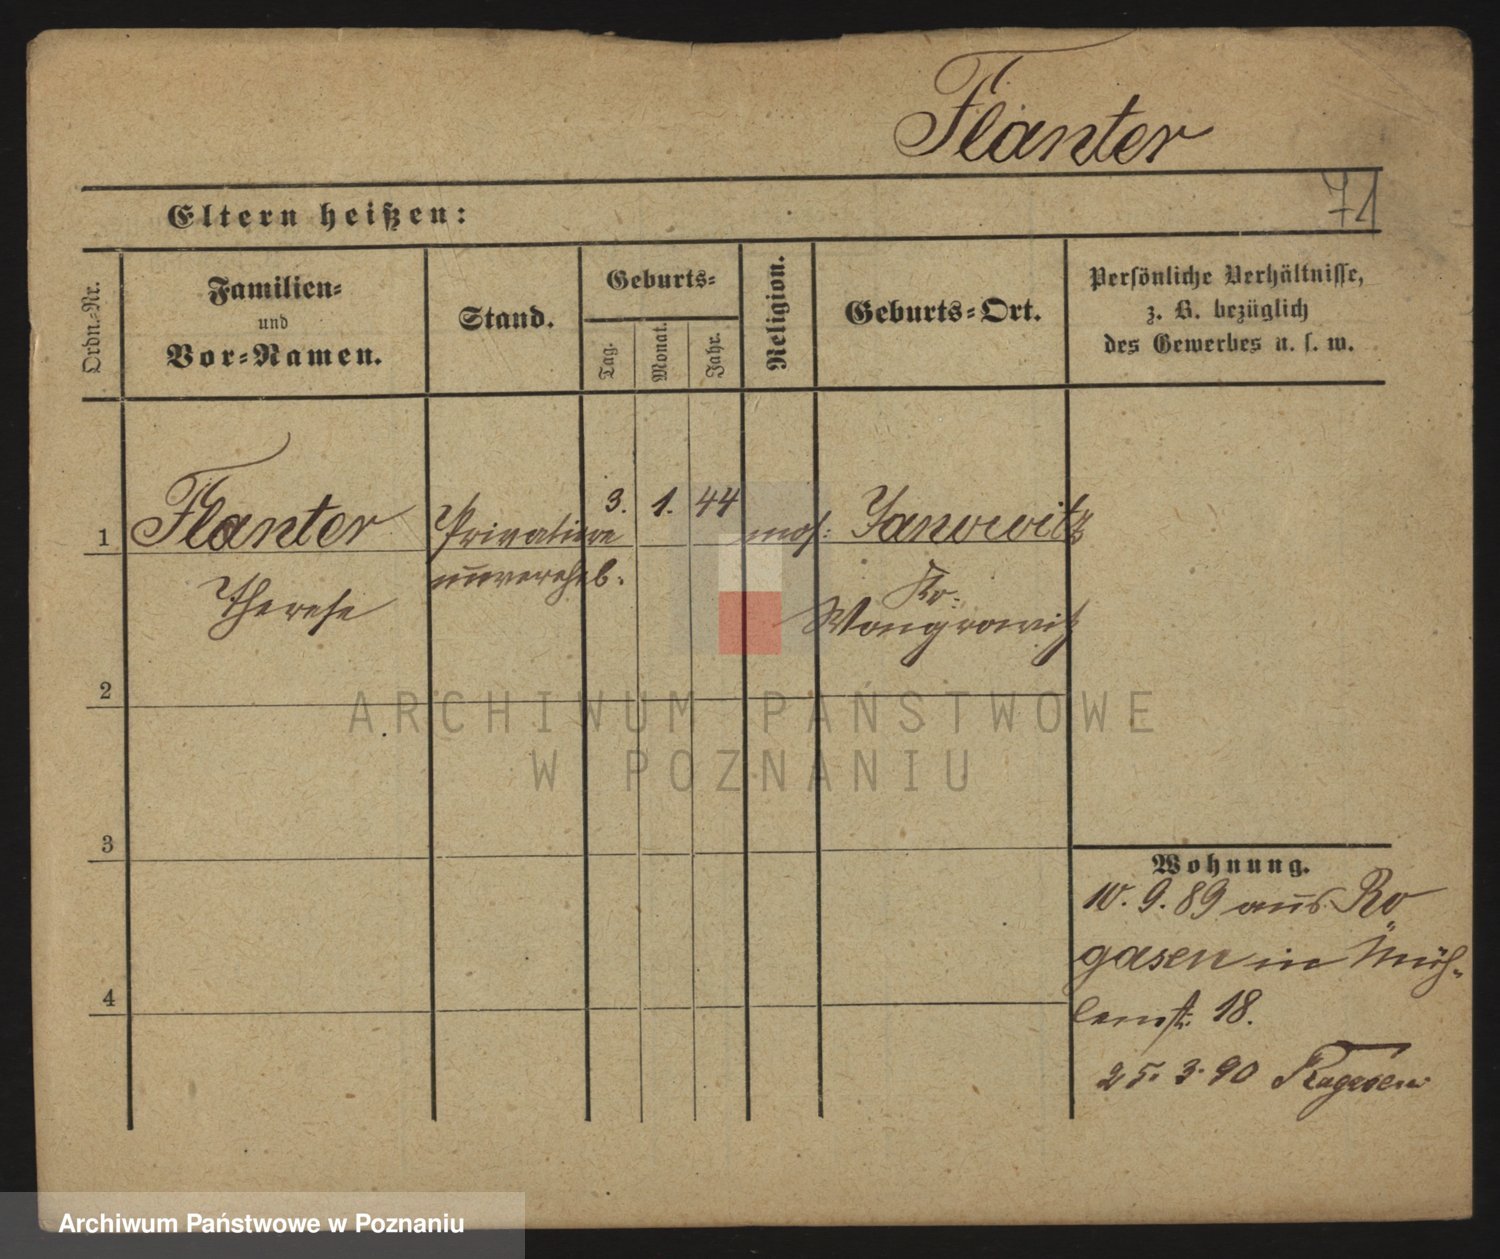 Flanter
71
Eltern heißen:
Ordn.-Nr.
Familien-
und
Vor-Namen.
Stand.
Geburts-
Tag.
Monat.
Jahr.
Religion.
Geburts-Ort.
Persönliche Verhältnisse,
z. B. bezüglich
des Gewerbes u. s. w.
1
Flanter
Therese
Privatiere
unverehel.
3. 1. 44
mos:
Janowitz
Kr.
Wongrowitz
2
3
4
Wohnung.
10. 9. 89 aus Ro
gasen in Müh-
lenstr. 18.
25. 3. 90 Rogasen
ARCHIWUM PAŃSTWOWE
W POZNANIU
Archiwum Państwowe w Poznaniu